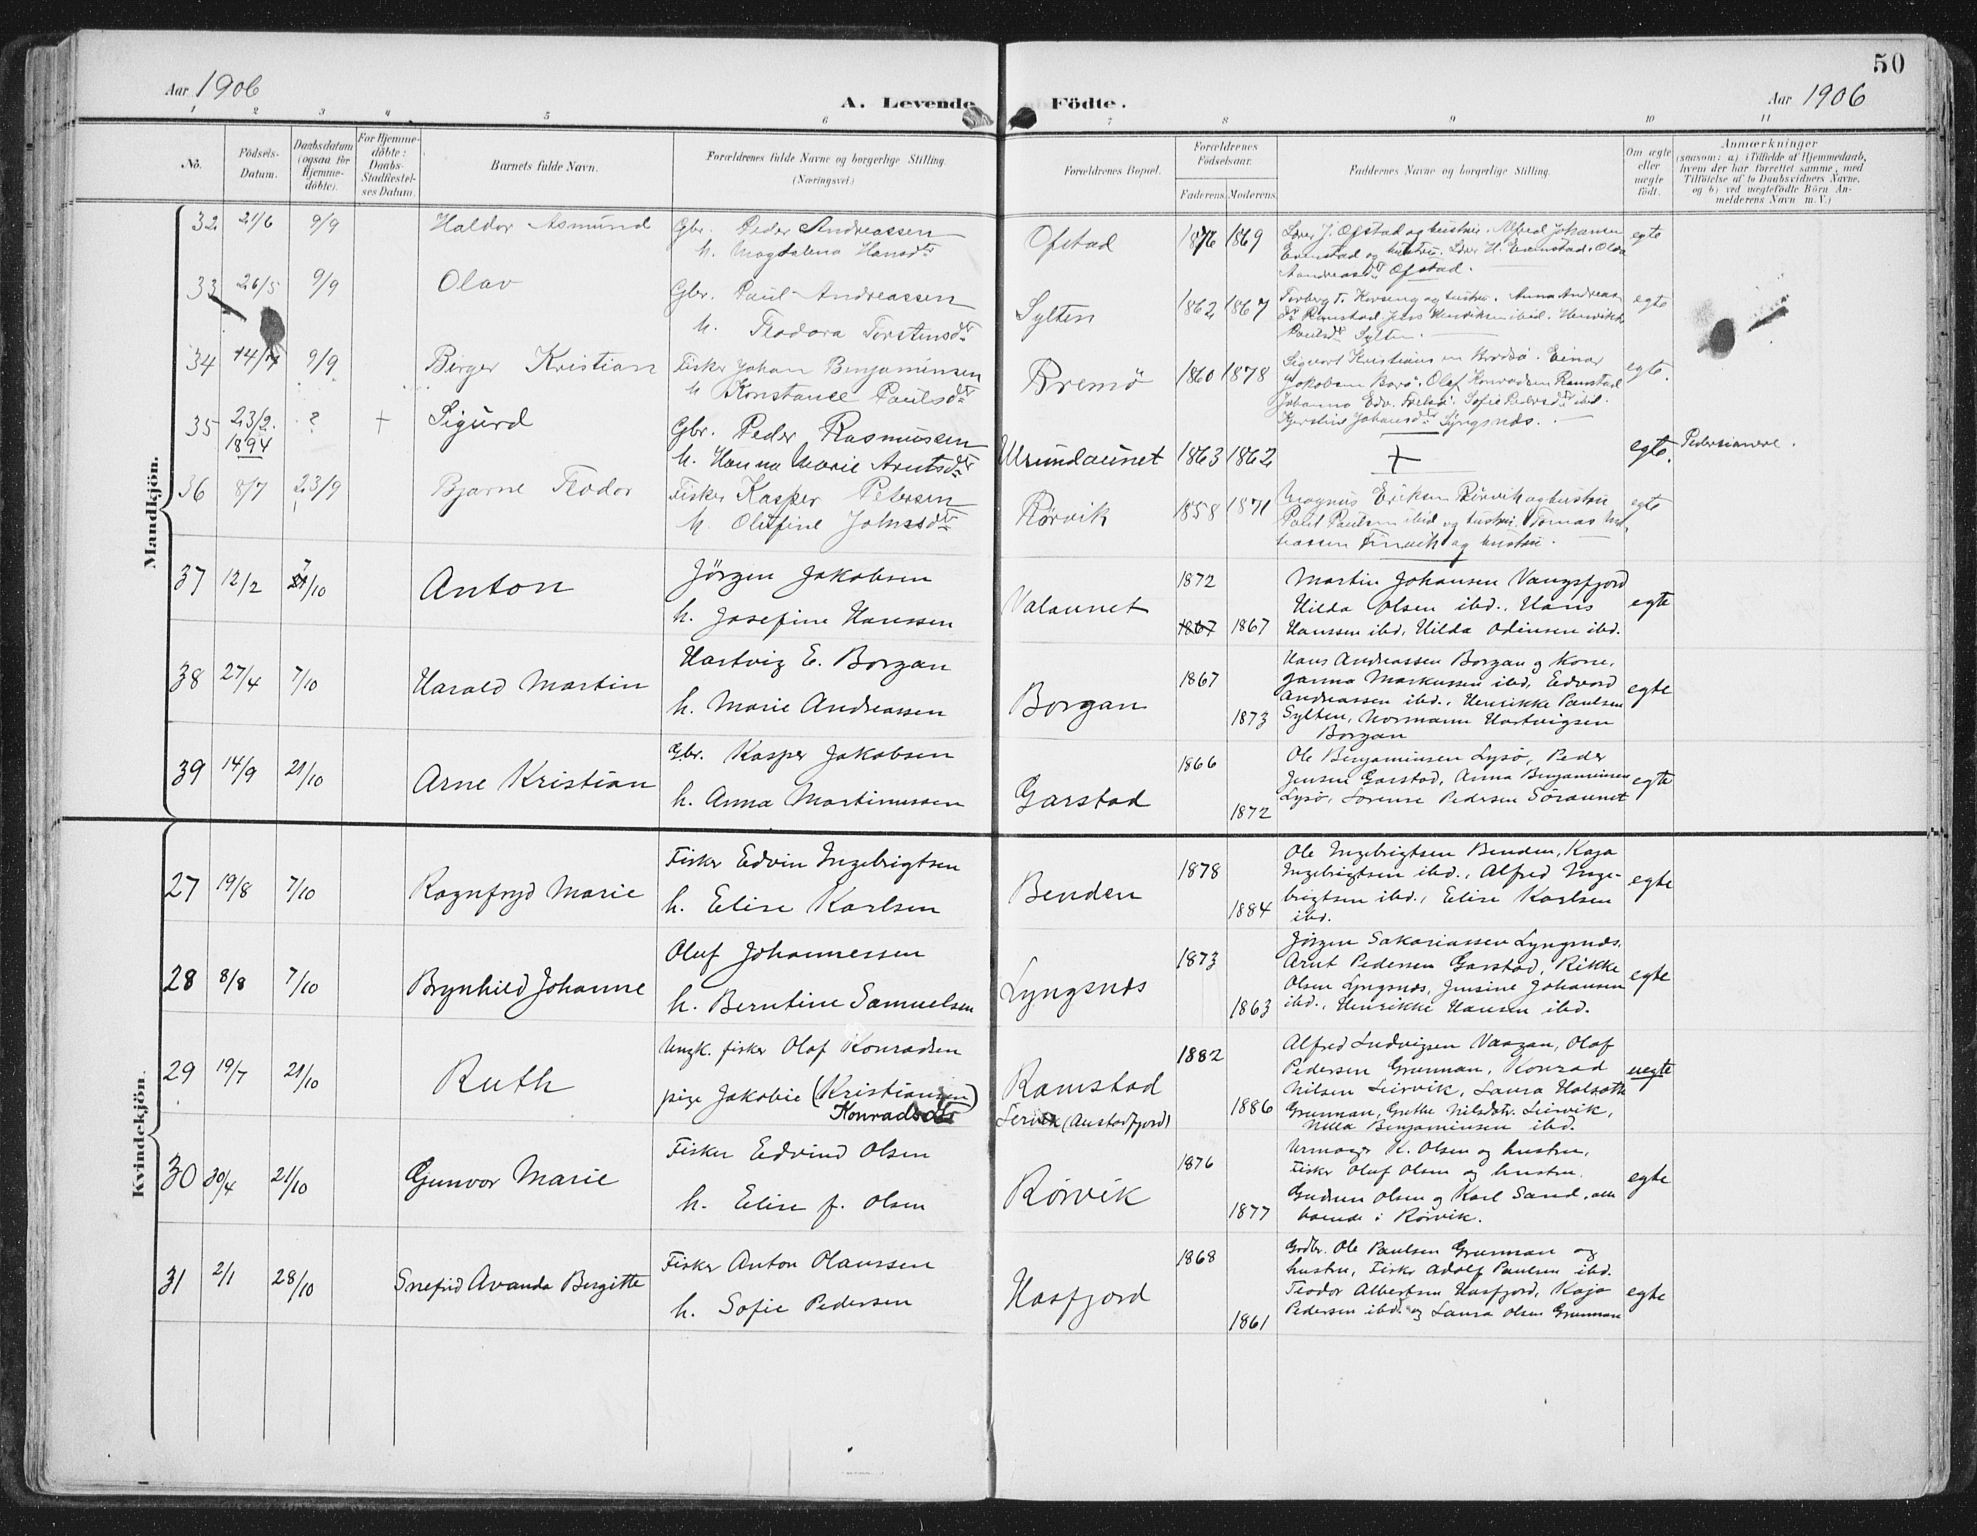 50
Aar 1906
A. Levende Födte.
Aar 1906
1 2 3 4 5 6 7 8 9 10 11
No.
Födsels-
Datum.
Daabsdatum
(ogsaa for
Hjemme-
döbte).
For Hjemme-
döbte:
Daabs-
Stadfæstel-
ses Datum.
Barnets fulde Navn.
Forældrenes fulde Navne og borgerlige Stilling.
(Næringsvei.)
Forældrenes Bopæl.
Forældrenes
Födselsaar.
Faderens. Moderens.
Faddernes Navne og borgerlige Stilling.
Om ægte
eller
uægte
födt.
Anmærkninger
(saasom: a) i Tilfælde af Hjemmedaab,
hvem der har forrettet samme, med
Tilföielse af to Daabsvidners Navne,
og b) ved uægtefödte Börn An-
melderens Navn m. V.)
Mandkjön.
32 21/6 9/9 Haldor Asmund
Gbr. Peder Andreassen
h. Magdalena Hansdr
Ofstad 1876 1869
Lærer J. Ofstad og hustru. Alfred Johansen
Evenstad og hustru. Lærer H. Evenstad. Olda
Andreasdr Ofstad.
egte
33 26/5 9/9 Olav
Gbr. Paul Andreassen
h. Teodora Torstensdr
Sylten 1862 1867
Torberg T. og hustru. Anna Andreas
dr Ramstad. Jens Henriksen ibid. Henrikke
Paulsdr Sylten.
egte
34 14/ 9/9 Birger Kristian
Fisker Johan Benjaminsen
h Konstance Paulsdr
Bremö 1860 1878
Sigvart Kristiansen. Einar
Jakobsen Borö. Olaf Konradsen Ramstad
Johanna Edv. Sofie Pedersdr ibid.
Johansdr Lyngsnes.
egte.
35 23/2. 1894 ? + Sigurd
Gbr. Peder Rasmussen
h. Hanna Marie Arntsdr
Ulsundaunet 1863 1862
+
egte. Pedersianere.
36 8/7 23/9 Bjarne Teodor
Fisker Kasper Petersen
h. Olufine Johnsdr
Rørvik 1858 1871
Magnus Eriksen Rörvik og hustru
Paul Paulsen ibid og hustru. Tomas
og hustru.
egte
37 12/2 7/10 Anton
Jörgen Jakobsen
h. Josefine Hanssen
Valaunet 1872 1867 1867
Martin Johansen Vangsfjord
Hilda Olsen ibd., Hans
Hanssen ibd, Hilda Odinsen ibd.
egte
38 27/4 7/10 Harald Martin
Hartvig E. Borgan
h. Marie Andreassen
Borgan 1867 1873
Hans Andreassen Borgan og Kone,
Janna Markussen ibd, Edvard
Andreassen ibd., Henrikke Paulsen
Sylten, Normann Hartvigsen
Borgan
egte
39 14/9 21/10 Arne Kristian
Gbr. Kasper Jakobsen
h. Anna Martinussen
Garstad 1866 1872
Ole Benjaminsen Lysö, Peder
Jensen Garstad, Anna Benjaminsen
Lysö, Lorense Pedersen Söraunet
egte
Kvindekjön.
27 19/8 7/10 Ragnfryd Marie
Fisker Edvin Ingebrigtsen
h. Elise Karlsen
Benden 1878 1884
Ole Ingebrigtsen Benden, Kaja
Ingebrigtsen ibd., Alfred Inge-
brigtsen ibd., Elise Karlsen
ibd.
egte
28 8/8 7/10 Brynhild Johanne
Oluf Johannessen
h. Berntine Samuelsen
Lyngsnes 1873 1863
Jörgen Sakariassen Lyngsnes,
Arnt Pedersen Garstad, Rikke
Olsen Lyngsnes, Jensine Johansen
ibd., Henrikke Hansen ibd.
egte
29 19/7 21/10 Ruth
Ungk. fisker Olaf Konradsen
pige Jakobie (Kristiansen)
Konradsdtr
Ramstad
Lervik (Austadfjord)
1882 1886
Alfred Ludvigsen Vaagan, Olaf
Pedersen Grunnan, Konrad
Nilsen Leirvik, Laura
Grunnan, Grethe Nilsdtr. Leirvik,
Benjaminsen ibd.
uegte
30 30/4 21/10 Gunvor Marie
Fisker Edvind Olsen
h. Elise f. Olsen
Rörvik 1876 1877
Urmager K. Olsen og hustru,
Fisker Oluf Olsen og hustru
Gudrun Olsen og Karl Sand, alle
boende i Rörvik.
egte
31 2/1 28/10 Snefrid Avanda Bergitte
Fisker Anton Olaussen
h. Sofie Pedersen
Hasfjord 1868 1861
Grdbr. Ole Paulsen Grunnan og
hustru, Fisker Adolf Paulsen ibd.
Teodor Albertsen Hasfjord, Kaja
Pedersen ibd. og Laura Olsen Grunnan
egte